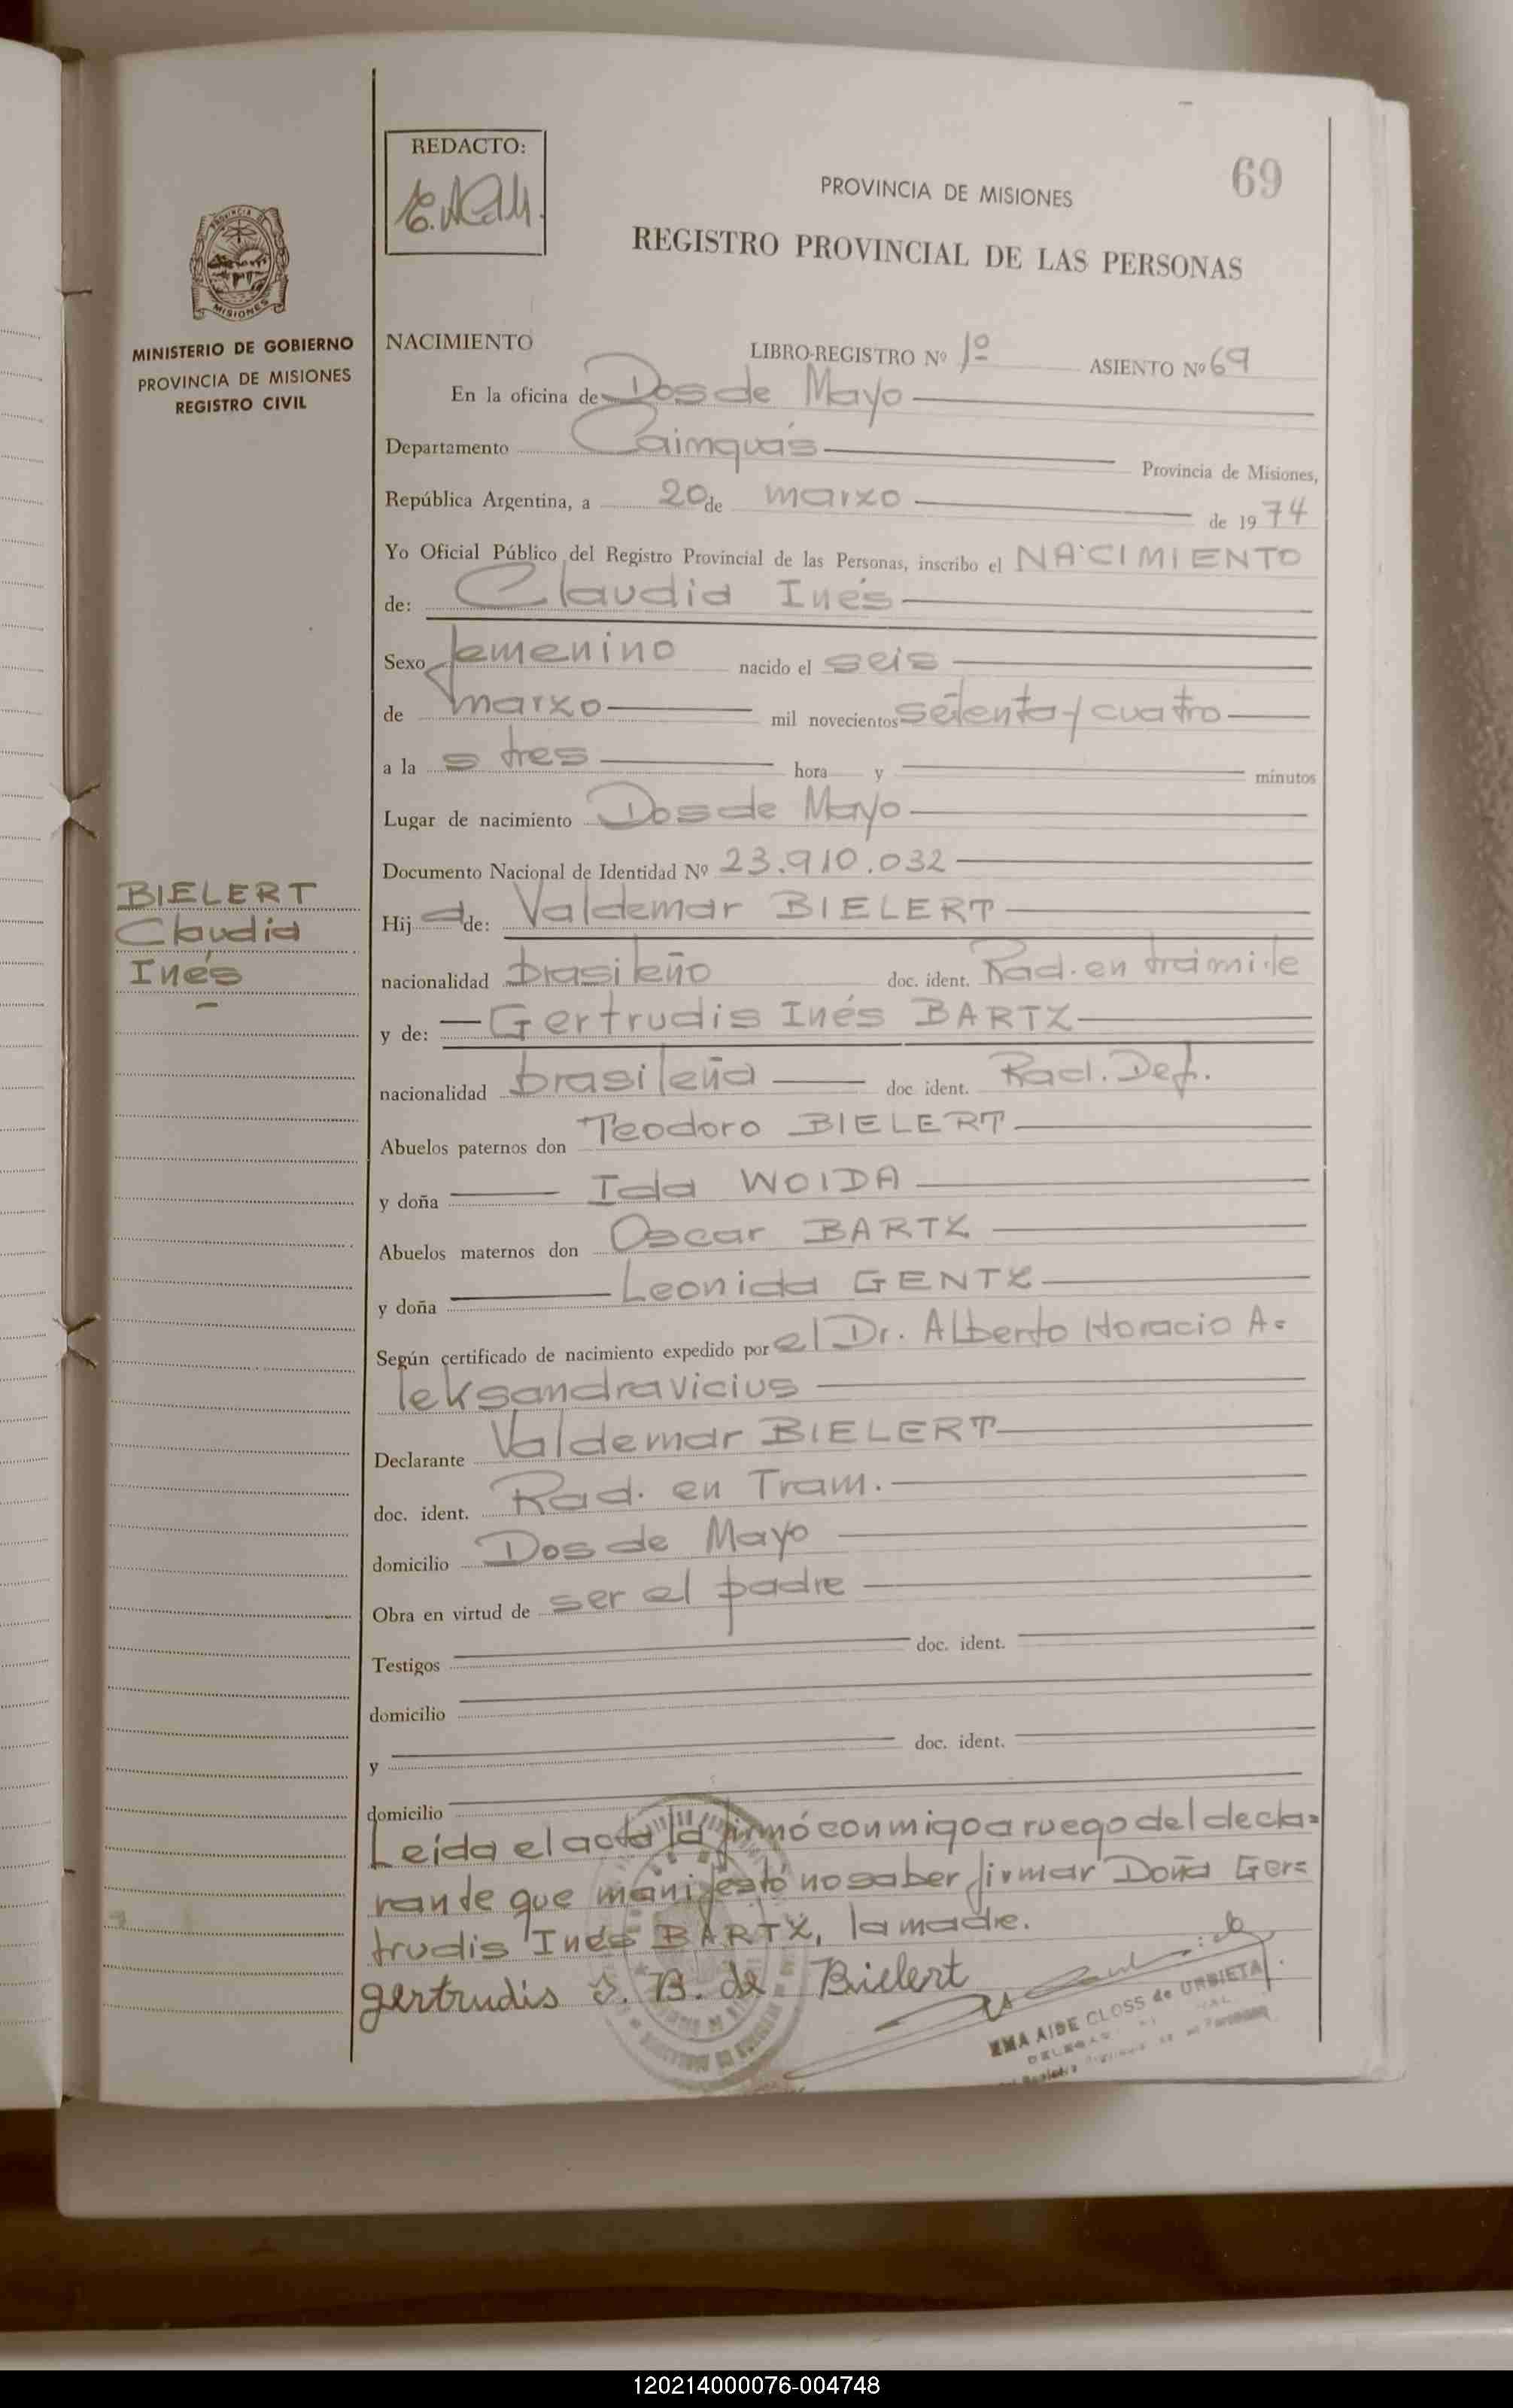 69
REDACTO:
PROVINCIA DE MISIONES
REGISTRO PROVINCIAL DE LAS PERSONAS
MISIONES
MINISTERIO DE GOBIERNO
PROVINCIA DE MISIONES
REGISTRO CIVIL
NACIMIENTO LIBRO-REGISTRO Nº 1º ASIENTO Nº 69
En la oficina de Dos de Mayo
Departamento Caimguás Provincia de Misiones,
República Argentina, a 20 de marzo de 1974
Yo Oficial Público del Registro Provincial de las Personas, inscribo el NACIMIENTO
de: Claudia Inés
Sexo femenino nacido el seis
de marzo mil novecientos setenta y cuatro
a la s tres hora y minutos
Lugar de nacimiento Dos de Mayo
Documento Nacional de Identidad Nº 23.910.032
BIELERT
Claudia
Inés
Hij a de: Valdemar BIELERT
nacionalidad brasileño doc. ident. Rad. en trámite
y de: Gertrudis Inés BARTZ
nacionalidad brasileña doc ident. Rad. Def.
Abuelos paternos don Teodoro BIELERT
y doña Ida WOIDA
Abuelos maternos don Oscar BARTZ
y doña Leonida GENTZ
Según certificado de nacimiento expedido por el Dr. Alberto Horacio A=
leksandravicius
Declarante Valdemar BIELERT
doc. ident. Rad. en Tram.
domicilio Dos de Mayo
Obra en virtud de ser el padre
Testigos doc. ident.
domicilio
y doc. ident.
domicilio
Leída el acta la firmó conmigo a ruego del decla=
rante que manifestó no saber firmar Doña Ger=
trudis Inés BARTZ, la madre.
gertrudis I. B. de Bielert
EMA AIDE CLOSS de URBIETA
120214000076-004748